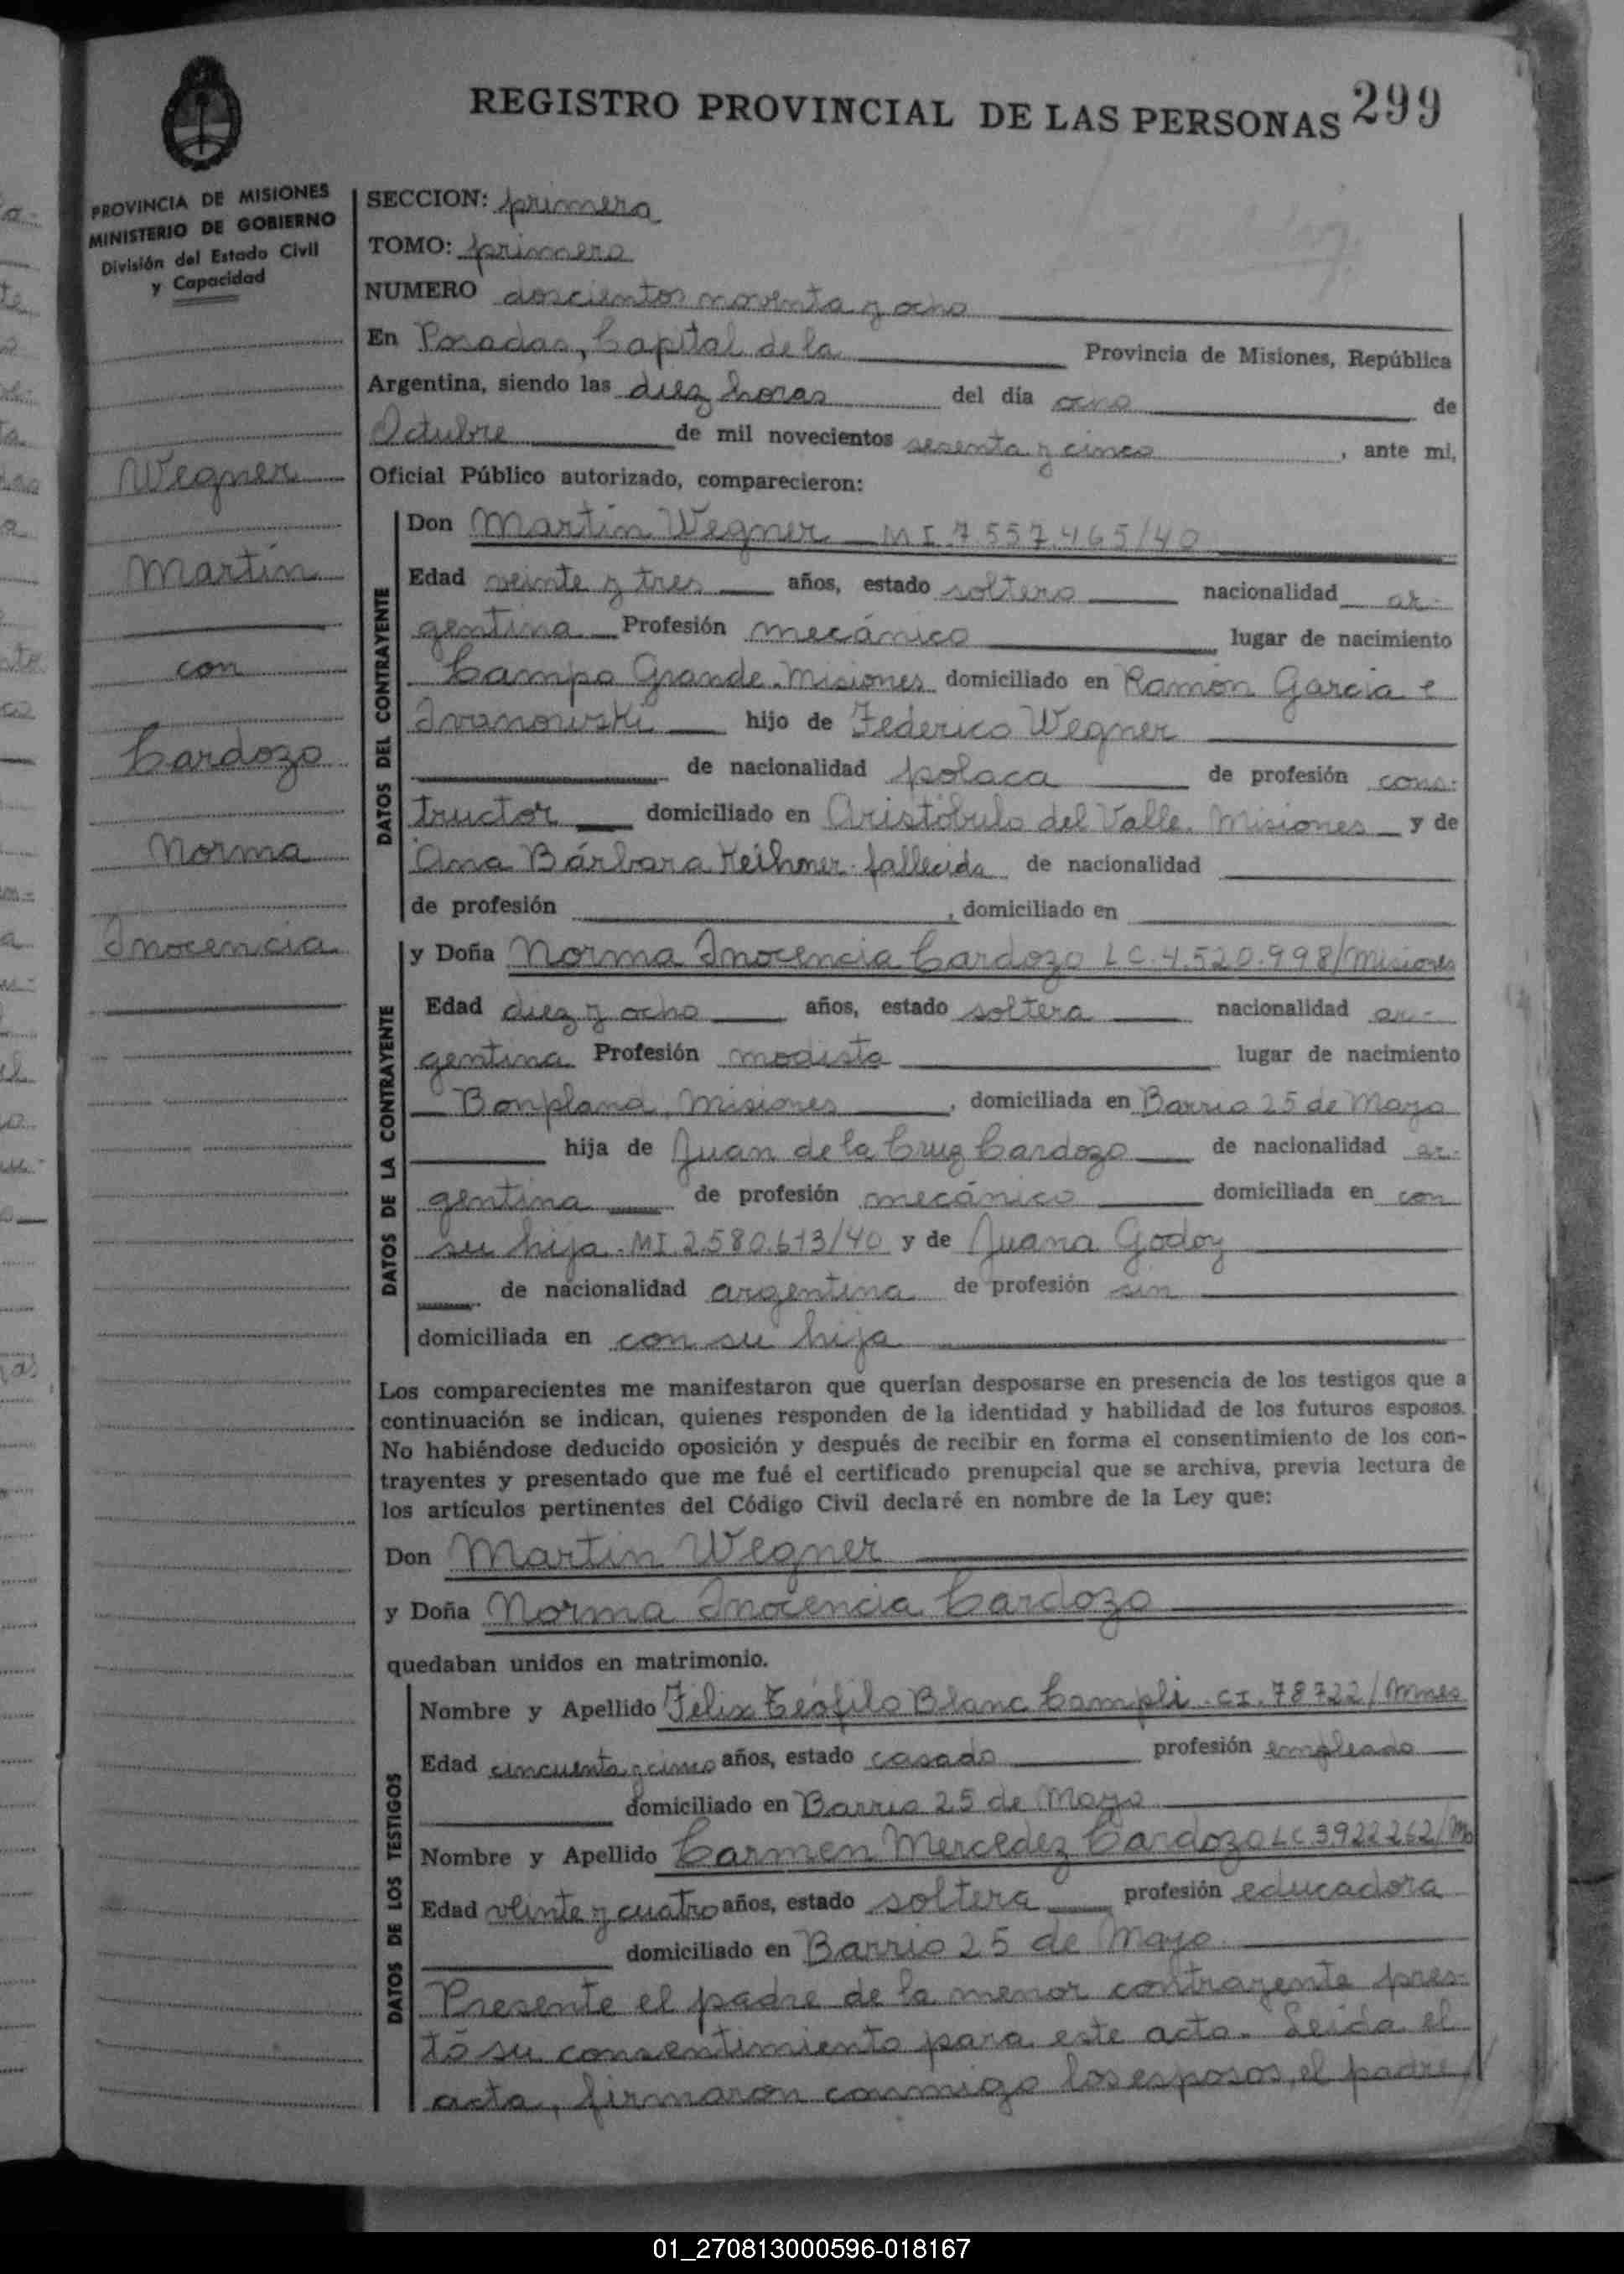 REGISTRO PROVINCIAL DE LAS PERSONAS 299
PROVINCIA DE MISIONES
MINISTERIO DE GOBIERNO
División del Estado Civil
y Capacidad
Wegner
Martín
con
Cardozo
Norma
Inocencia
SECCION: primera
TOMO: primero
NUMERO doscientos noventa y ocho
En Posadas, Capital de la Provincia de Misiones, República
Argentina, siendo las diez horas del día ocho de
Octubre de mil novecientos sesenta y cinco, ante mi,
Oficial Público autorizado, comparecieron:
DATOS DEL CONTRAYENTE
Don Martín Wegner MI.7.557.465/40
Edad veinte y tres años, estado soltero nacionalidad ar-
gentina Profesión mecánico lugar de nacimiento
Campo Grande. Misiones domiciliado en Ramón García e
Ivanowski hijo de Federico Wegner
de nacionalidad polaca de profesión cons-
tructor domiciliado en Aristóbulo del Valle. Misiones y de
Ana Bárbara fallecida de nacionalidad
de profesión , domiciliado en
DATOS DE LA CONTRAYENTE
y Doña Norma Inocencia Cardozo LC.4.520.998/Misiones
Edad diez y ocho años, estado soltera nacionalidad ar-
gentina Profesión modista lugar de nacimiento
Bonpland, Misiones , domiciliada en Barrio 25 de Mayo
hija de Juan de la Cruz Cardozo de nacionalidad ar-
gentina de profesión mecánico domiciliada en con
su hija. MI.2.580.613/40 y de Juana Godoy
de nacionalidad argentina de profesión sin
domiciliada en con su hija
Los comparecientes me manifestaron que querían desposarse en presencia de los testigos que a
continuación se indican, quienes responden de la identidad y habilidad de los futuros esposos.
No habiéndose deducido oposición y después de recibir en forma el consentimiento de los con-
trayentes y presentado que me fué el certificado prenupcial que se archiva, previa lectura de
los artículos pertinentes del Código Civil declaré en nombre de la Ley que:
Don Martín Wegner
y Doña Norma Inocencia Cardozo
quedaban unidos en matrimonio.
DATOS DE LOS TESTIGOS
Nombre y Apellido Félix Teófilo Blanc Campli. CI.78722/Mnes
Edad cincuenta y cinco años, estado casado profesión empleado
domiciliado en Barrio 25 de Mayo
Nombre y Apellido Carmen Mercedez Cardozo LC.3.922.262/M
Edad veinte y cuatro años, estado soltera profesión educadora
domiciliado en Barrio 25 de Mayo
Presente el padre de la menor contrayente pres-
tó su consentimiento para este acto. Leida el
acta, firmaron conmigo los esposos, el padre
01_270813000596-018167